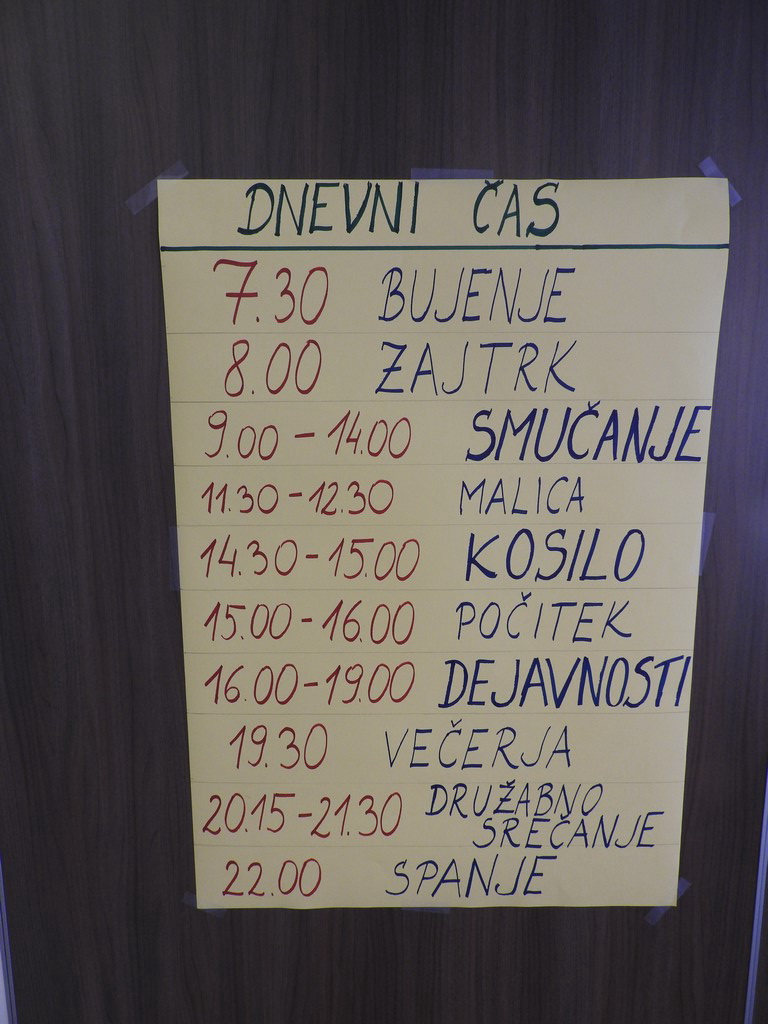 DNEVNI ČAS
7.30 BUJENJE
8.00 ZAJTRK
9.00 - 14.00 SMUČANJE
11.30 - 12.30 MALICA
14.30 - 15.00 KOSILO
15.00 - 16.00 POČITEK
16.00 - 19.00 DEJAVNOSTI
19.30 VEČERJA
20.15 - 21.30 DRUŽABNO
SREČANJE
22.00 SPANJE